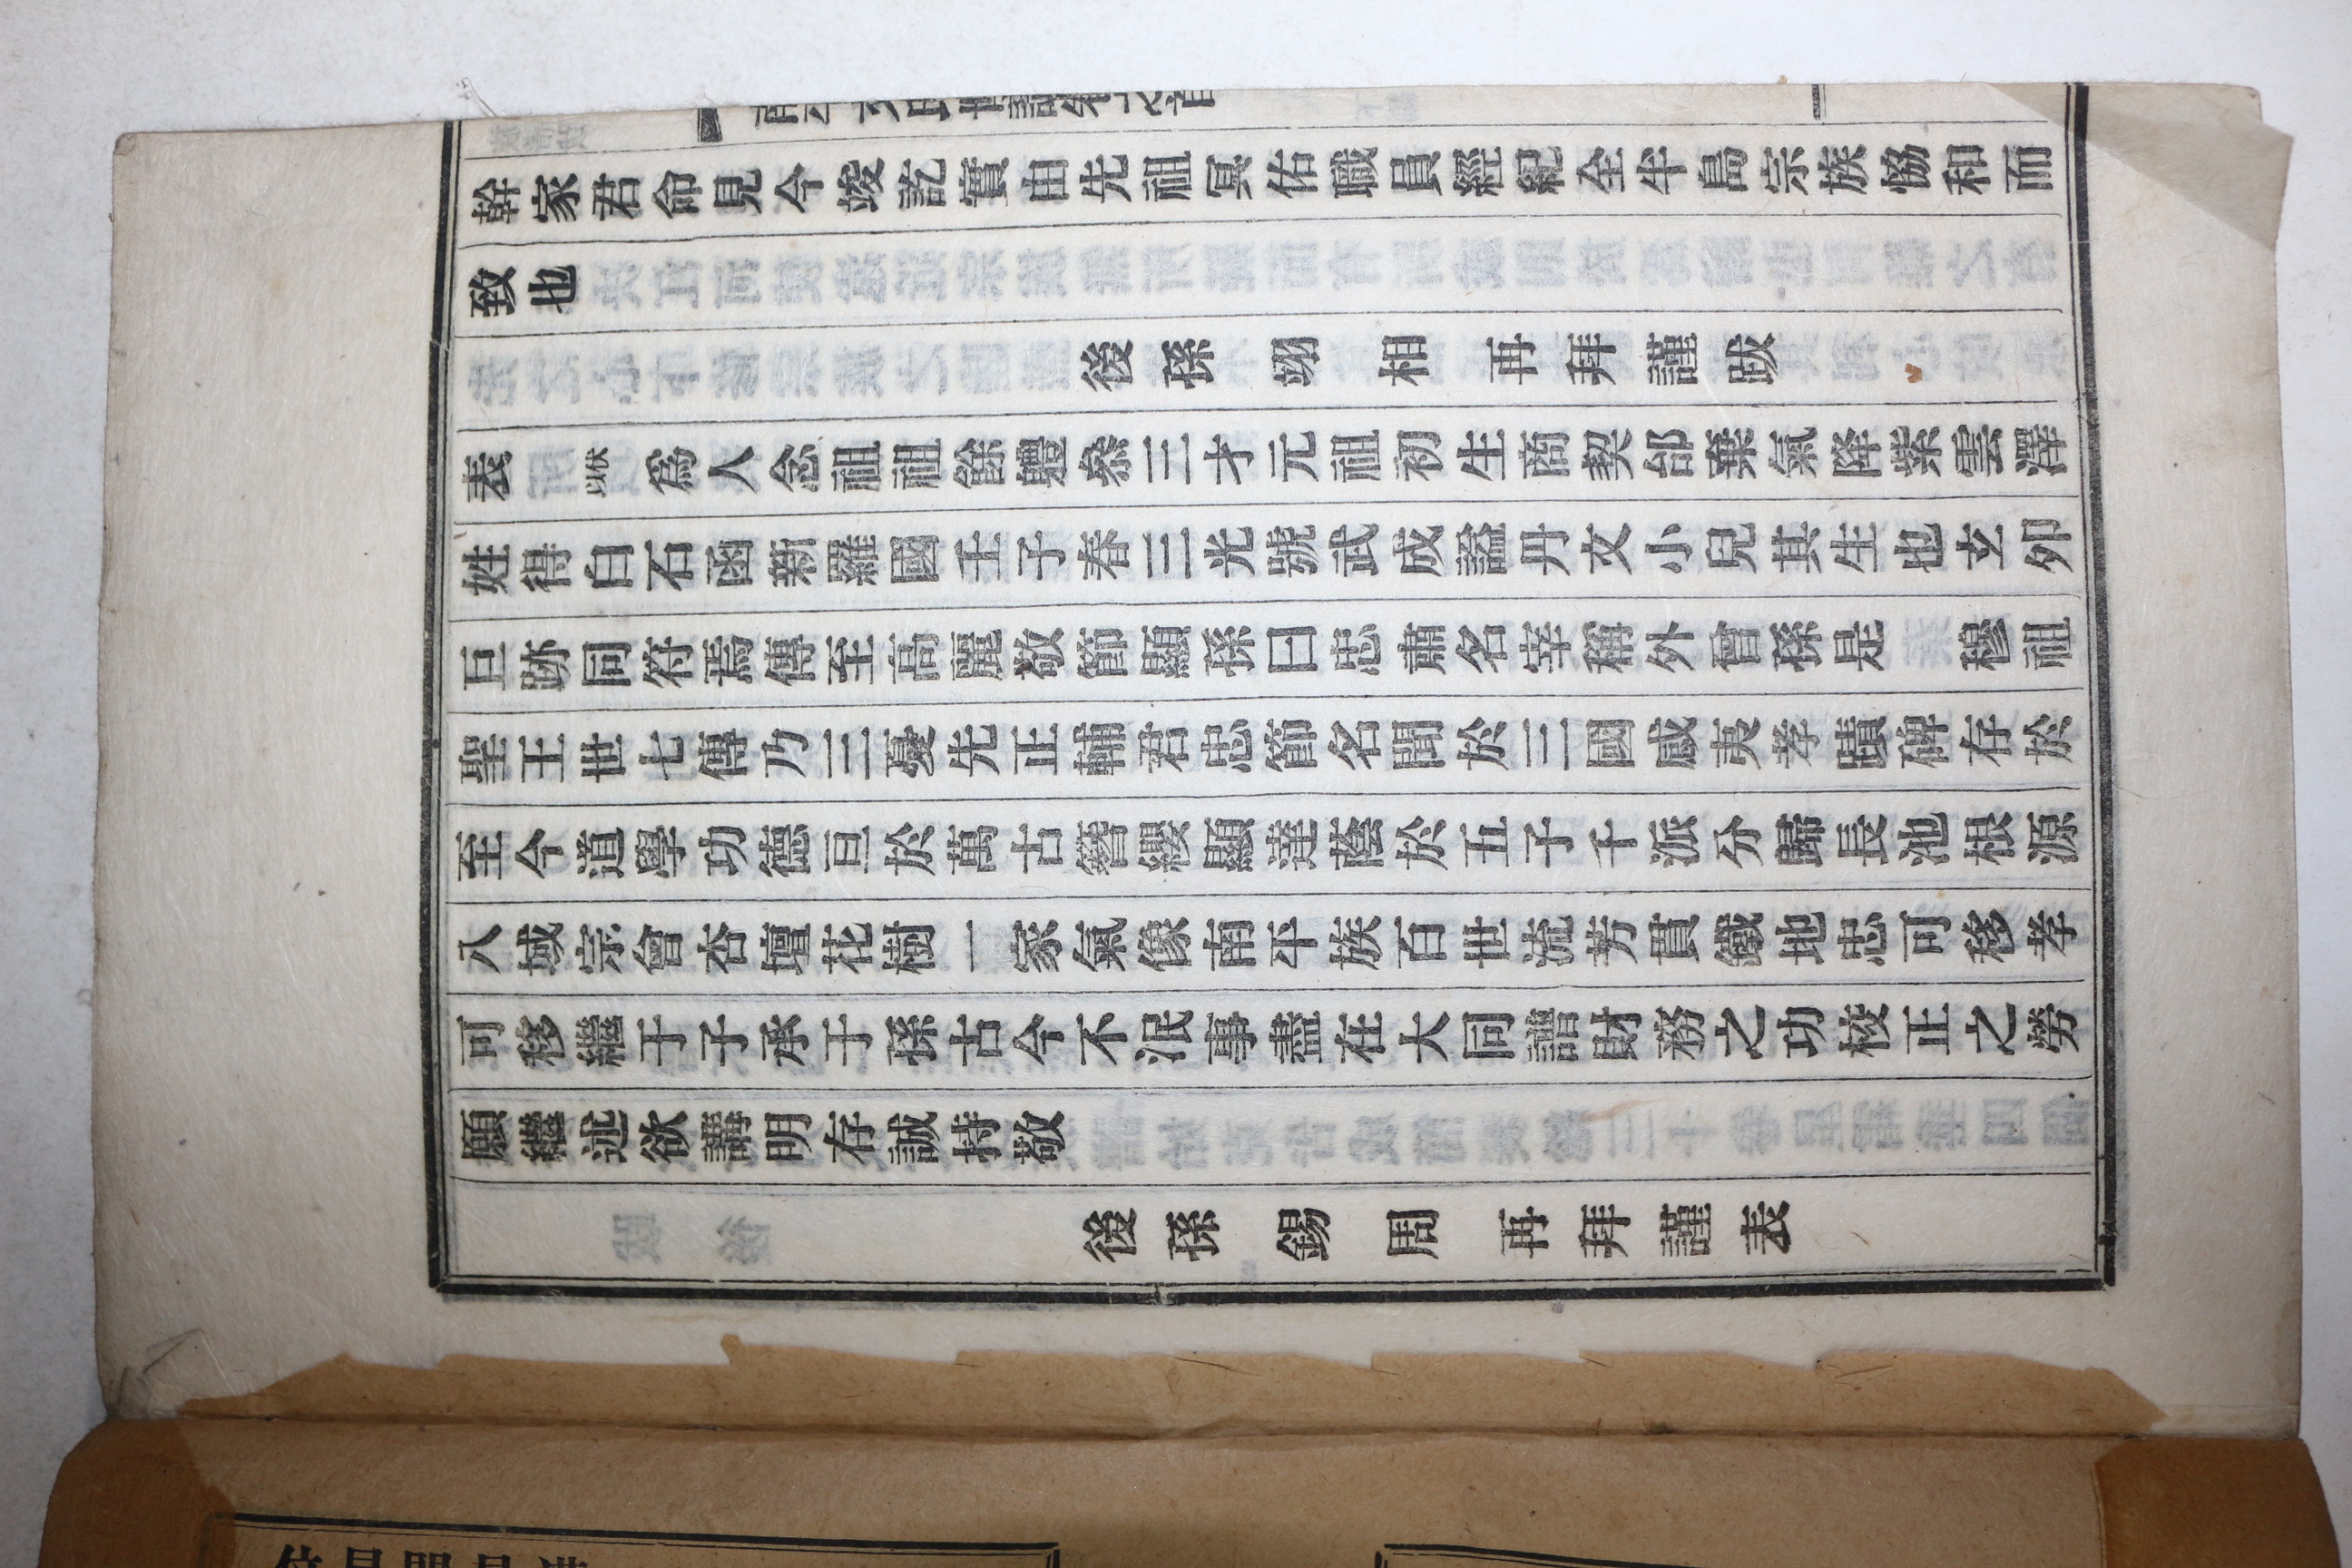 幹家君命見今竣訖實由先祖冥佑職員經紀全牛島宗族協和而
致也
後孫翊相再拜謹跋
表 伏以爲人念祖祖餘體叅三才元祖初生商契邰棄氣降紫雲澤
姓得白石函新羅國王子春三光號武成謚丹文小兒其生也玄卵
巨跡同符焉傳至高麗敬節顯孫曰忠肅名宰稱外曾孫是 穆祖
聖王世七傳乃三憂先正輔君忠節名聞於三國感夷孝蹟碑存於
至今道學功德亘於萬古簪纓顯達蔭於五子千派分歸長池根源
八域宗會杏壇花樹一家氣像南平族百世流芳貫鐵地忠可移孝
可移繼于子承于孫古今不泯事盡在大同譜財務之功校正之勞
願繼述欲講明存誠持敬
後孫錫周再拜謹表